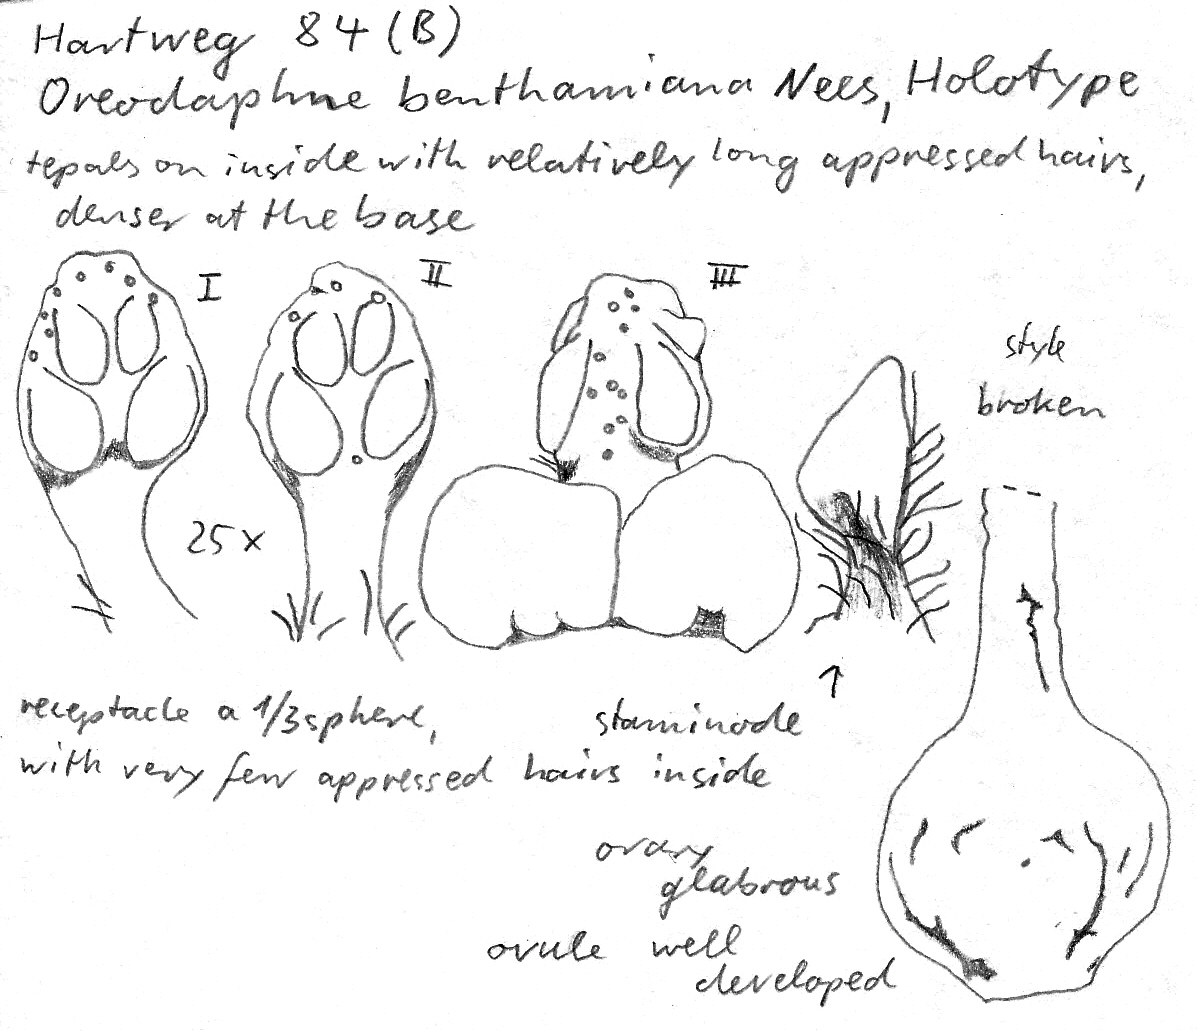 Hartweg 84 (B)
Oreodaphne benthamiana Nees, Holotype
tepals on inside with relatively long appressed hairs,
denser at the base
I
II
III
style
broken
25 x
receptacle a 1/3 sphere,
with very few appressed hairs inside
↑
staminode
ovary
glabrous
ovule well
developed